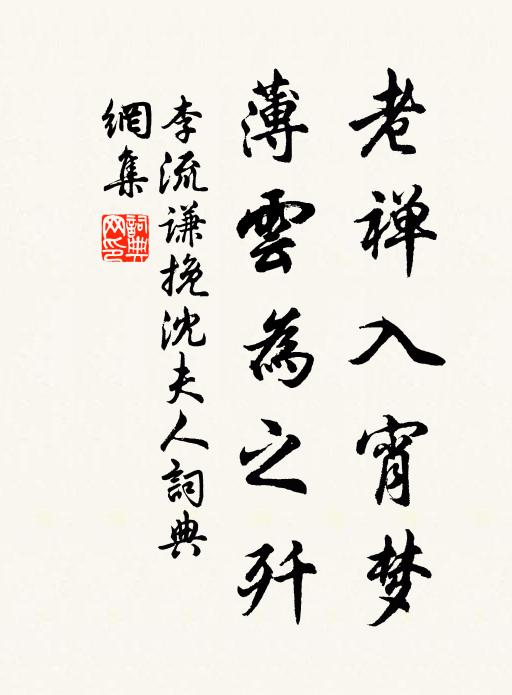 老禅入宵梦
薄雲為之歼
李流谦挽沈夫人詞典
網集
詞典網印